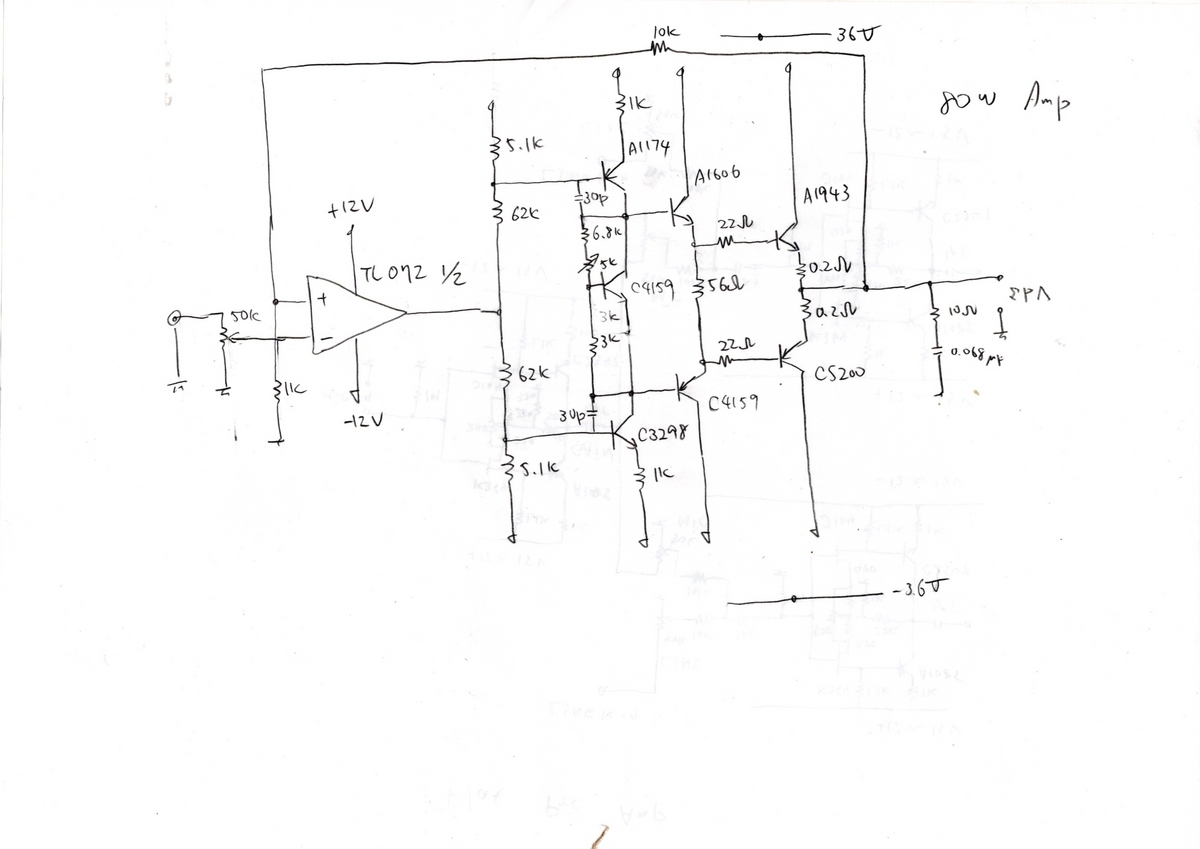 10k
36V
80W Amp
1k
5.1k
A1174
A1606
A1943
30p
62k
+12V
22Ω
6.8k
TL072 1/2
5k
0.2Ω
C4159
56Ω
+
50k
3k
0.2Ω
10Ω
3k
-
22Ω
0.068μF
62k
C5200
1k
C4159
30p
-12V
C3298
5.1k
1k
-36V